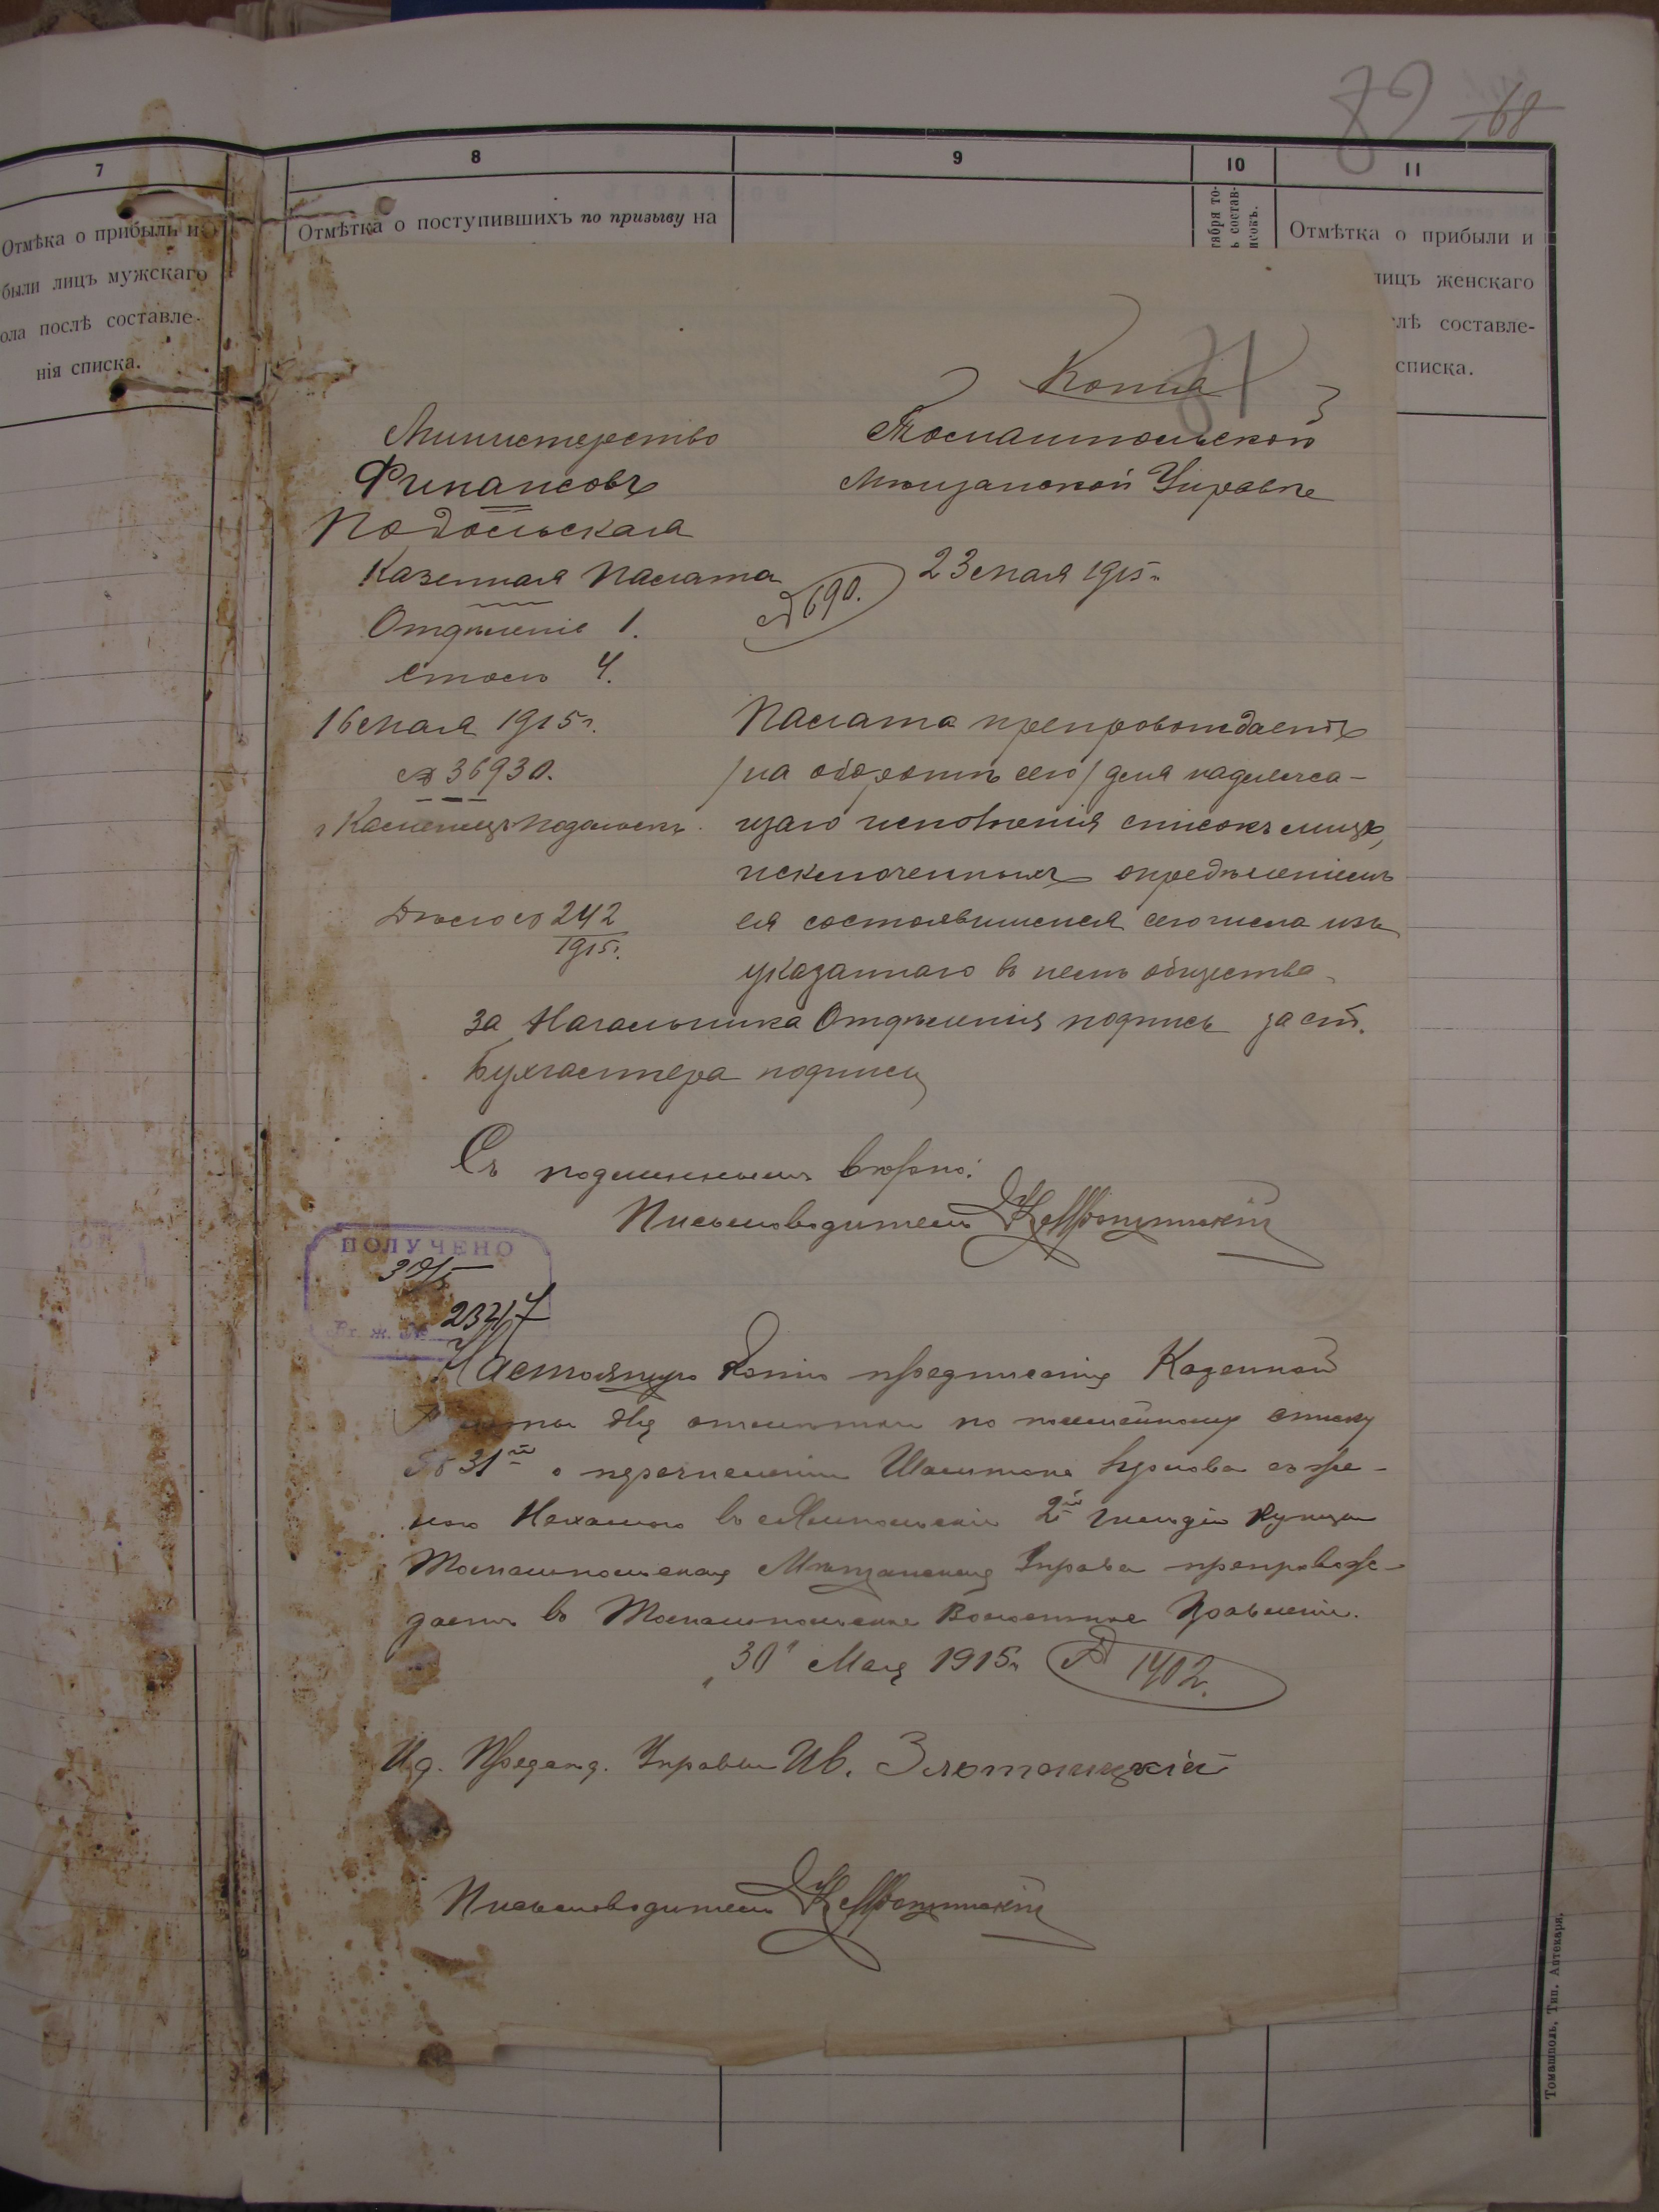 82 68
7
8
9
10
11
Отмѣка о прибыли и
были лицъ мужскаго
ола послѣ составле-
нія списка.
Отмѣтка о поступившихъ по призыву на
тября то-
ь состав-
исокъ.
Отмѣтка о прибыли и
лицъ женскаго
слѣ составле-
списка.
Копія
Министерство
Финансовъ
Подольская
Казенная Палата
Отдѣленіе 1.
Столъ 4.
16 мая 1915 г.
№ 36930.
г Каменецъ Подольскъ.
Дѣло № 242
1915 г.
Томашпольской
Мѣщанской Управѣ
23 мая 1915 г.
№ 690.
Палата препровождаетъ
/на оборотѣ сего/ для надлежа-
щаго исполненія списокъ лицъ,
исключенныхъ опредѣленіемъ
ея состоявшимся сего числа изъ
указаннаго въ немъ общества.
За Начальника Отдѣленія подпись за ст.
Бухгалтера подпись
Съ подлиннымъ вѣрно:
Письмоводитель
ПОЛУЧЕНО
30/5
Вх. ж. № 2347
Настоящую копію предписанія Казенной
Палаты для отмѣтки по посемейному списку
№ 31й о перечисленіи съ же-
ною въ Ямпольскіе 2й гильдіи купцы
Томашпольская Мѣщанская Управа препровож-
даетъ въ Томашпольское Волостное Правленіе.
„30" Мая 1915 г. № 1402.
Ид. Предсѣд. Управы Ив. Злотницкій
Письмоводитель
Томашполь, Тип. Аптекаря.